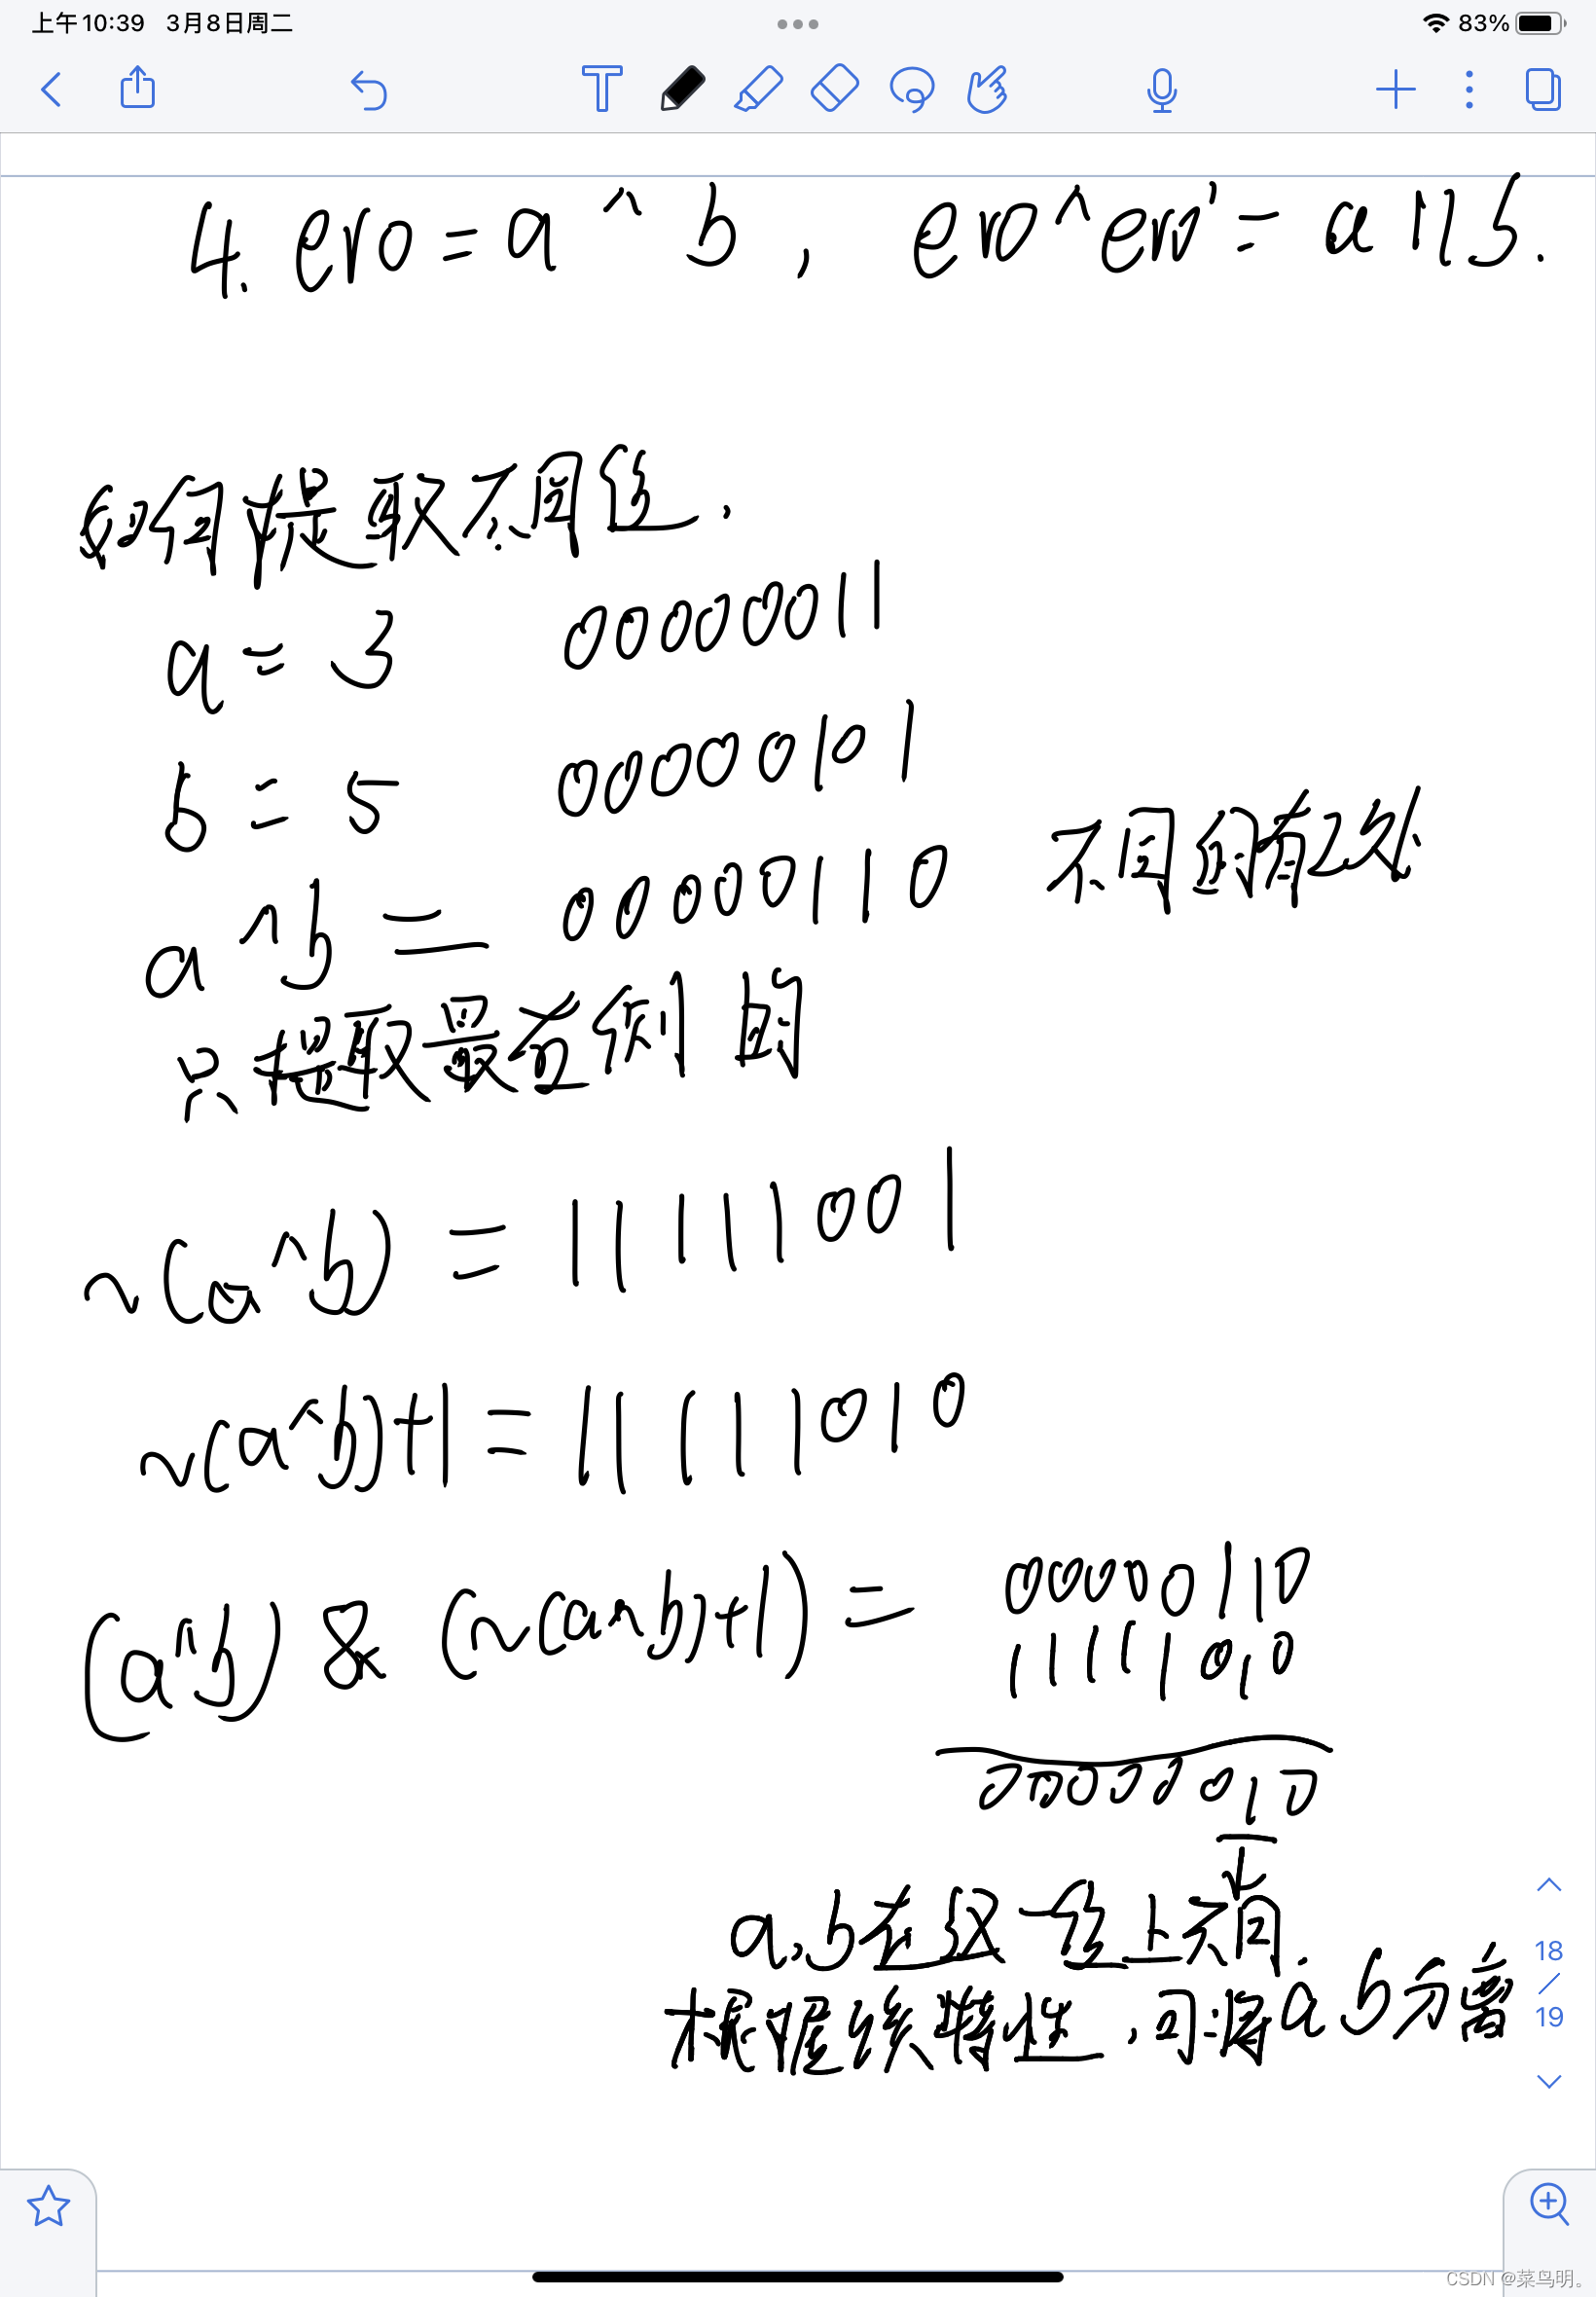 上午10:39 3月8日周二
83%
4. ero = a ^ b , ero ^ ero' = a || b.
如何提取不同位.
a = 3 00000011
b = 5 00000101
a ^ b = 00000110 不同的有2处
只提取最右侧的
~(a^b) = 11111001
~(a^b)+1 = 11111010
(a^b) & (~(a^b)+1) = 00000110
11111010
00000010
a,b在这一位上不同.
根据该特性,可将a b分离
18
19
CSDN @菜鸟明。